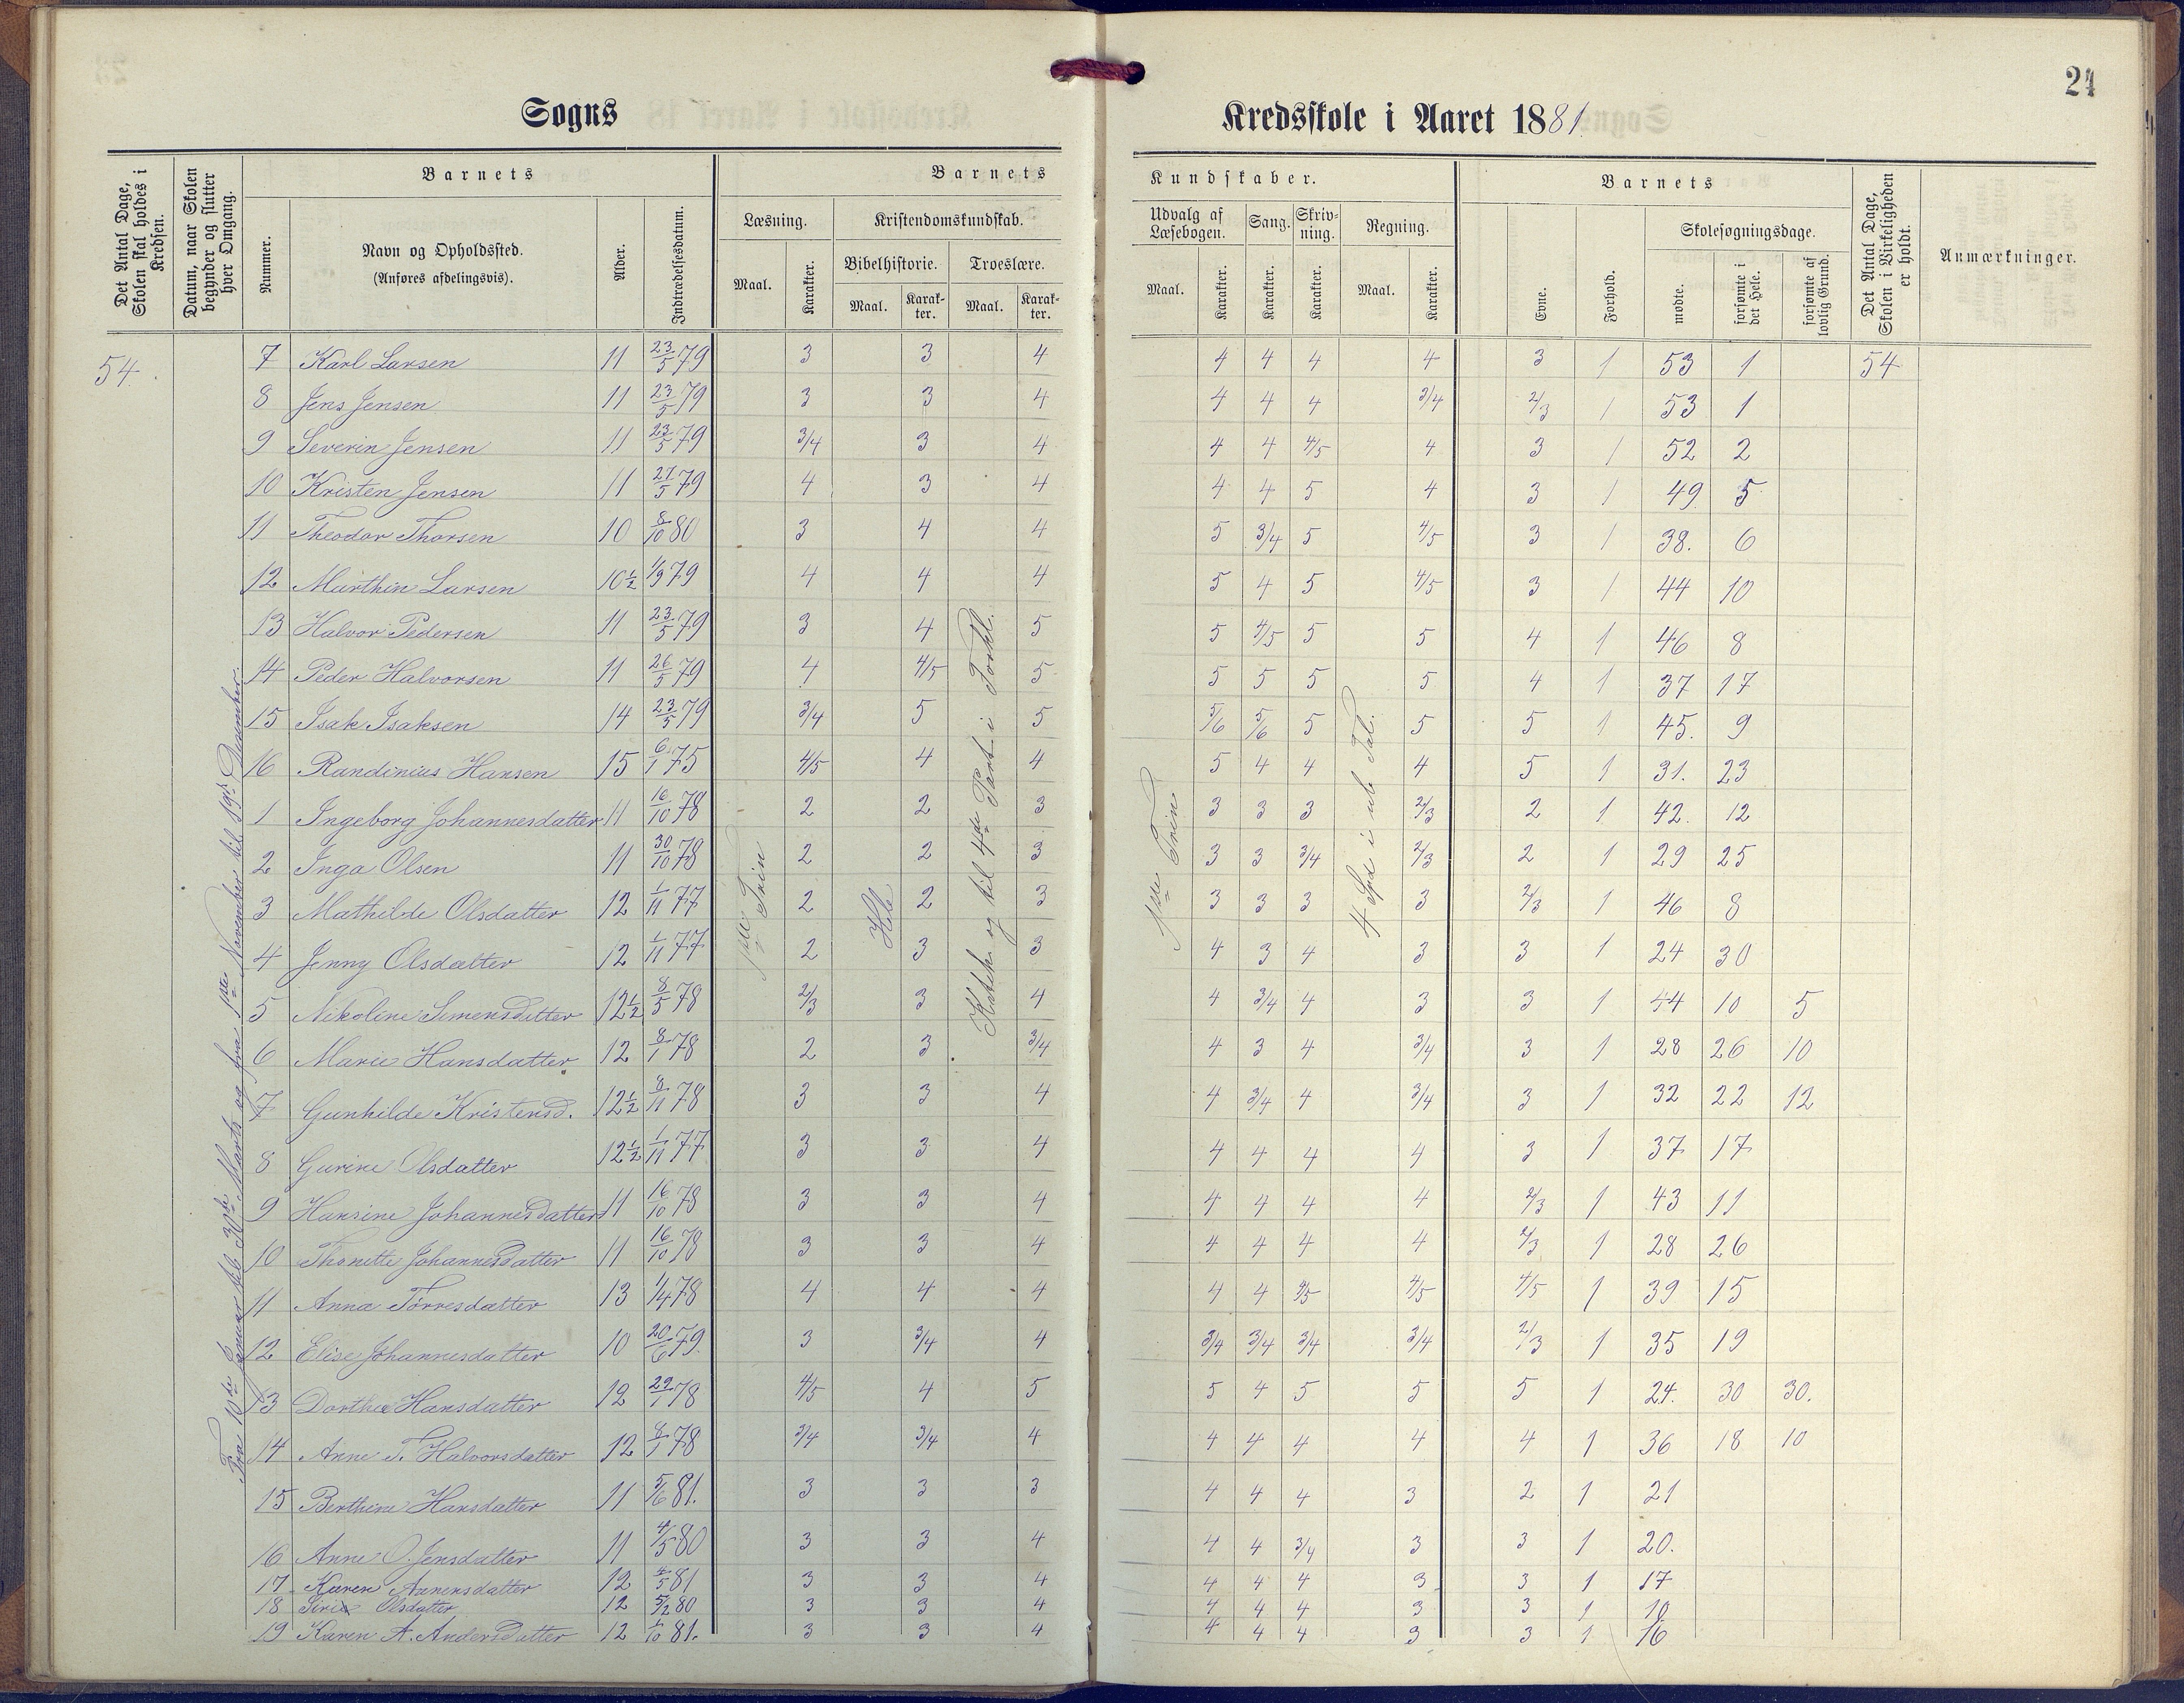 24
Sogns Kredsskole i Aaret 1881.
Det Antal Dage, Skolen skal holdes i Kredsen.
Datum, naar Skolen begynder og slutter hver Omgang.
Barnets
Nummer.
Navn og Opholdssted.
(Anføres afdelingsvis).
Alder.
Indtrædelsesdatum.
Barnets Kundskaber.
Læsning.
Maal.
Karakter.
Kristendomskundskab.
Bibelhistorie.
Maal.
Karakter.
Troeslære.
Maal.
Karakter.
Udvalg af Læsebogen.
Maal.
Karakter.
Sang.
Karakter.
Skrivning.
Karakter.
Regning.
Maal.
Karakter.
Barnets
Evne.
Forhold.
Skolesøgningsdage.
mødte.
forsømte i det Hele.
forsømte af lovlig Grund.
Det Antal Dage, Skolen i Virkeligheden er holdt.
Anmærkninger.
54. 7 Karl Larsen 11 23/5 79 3 3 4 4 4 4 4 3 1 53 1 54
8 Jens Jensen 11 23/5 79 3 3 4 4 4 4 3/4 2/3 1 53 1
9 Severin Jensen 11 23/5 79 3/4 3 4 4 4 4/5 4 3 1 52 2
10 Kristen Jensen 11 21/5 79 4 3 4 4 4 5 4 3 1 49 5
11 Theodor Thorsen 10 8/10 80 3 4 4 5 3/4 5 4/5 3 1 38. 6
12 Marthin Larsen 10 1/2 1/9 79 4 4 4 5 4 5 4/5 3 1 44 10
13 Halvor Pedersen 11 23/5 79 3 4 5 5 4/5 5 5 4 1 46 8
14 Peder Halvorsen 11 26/5 79 4 4/5 5 5 5 5 5 4 1 37 17
15 Isak Isaksen 14 23/5 79 3/4 5 5 5/6 5/6 5 5 5 1 45. 9
16 Randinius Hansen 15 6/1 75 4/5 4 4 5 4 4 4 5 1 31. 23
1 Ingeborg Johannesdatter 11 16/10 78 2 2 3 3 3 3 2/3 2 1 42. 12
2 Inga Olsen 11 30/10 78 2 2 3 3 3 3/4 2/3 2 1 29 25
3 Mathilde Olsdatter 12 1/11 77 2 2 3 3 3 3 3 2/3 1 46 8
4 Jenny Olsdatter 12 1/11 77 2 3 3 4 3 4 3 3 1 24 30
5 Nikoline Simensdatter 12 1/2 8/5 78 2/3 3 4 4 3/4 4 3 3 1 44 10 5
6 Marie Hansdatter 12 8/1 78 2 3 3/4 4 3 4 3/4 3 1 28 26 10
7 Gunhilde Kristensd. 12 1/2 8/11 78 3 3 4 4 3/4 4 3/4 3 1 32 22 12
8 Gurine Olsdatter 12 1/2 1/11 77 3 3 4 4 4 4 4 3 1 37 17
9 Hansine Johannesdatter 11 16/10 78 3 3 4 4 4 4 4 2/3 1 43 11
10 Thonette Johannesdatter 11 16/10 78 3 3 4 4 4 4 4 2/3 1 28 26
11 Anna Tørresdatter 13 1/4 78 4 4 4 4 4 4/5 4/5 1 39 15
12 Elise Johannesdatter 10 20/6 79. 3 3/4 4 3/4 3/4 3/4 3/4 2/3 1 35 19
13 Dorthea Hansdatter 12 29/1 78 4/5 4 5 5 4 5 5 5 1 24. 30 30.
14 Anne T. Halvorsdatter 12 8/1 78 3/4 3/4 4 4 4 4 4 4 1 36 18 10
15 Berthine Hansdatter 11 5/6 81. 3 3 3 4 4 4 3 2 1 21
16 Anne O. Jensdatter 11 4/5 80 3 3 4 4 4 3/4 3 3 1 20.
17 Karen Aanensdatter 12 4/5 81 3 3 4 4 4 4 3 3 1 17
18 Siri Olsdatter 12 5/2 80 3 3 4 4 4 4 3 3 1 10
19 Karen A. Andersdatter 12 1/10 81. 3 3 4 4 4 4 3 3 1 16
Fra 10de Januar til 30te Marts og fra 1ste November til 19de December.
1ste Trin
Hele
Katek. og til 4de Part i Forkl.
1ste Trin
4 Spd i ub Tal.